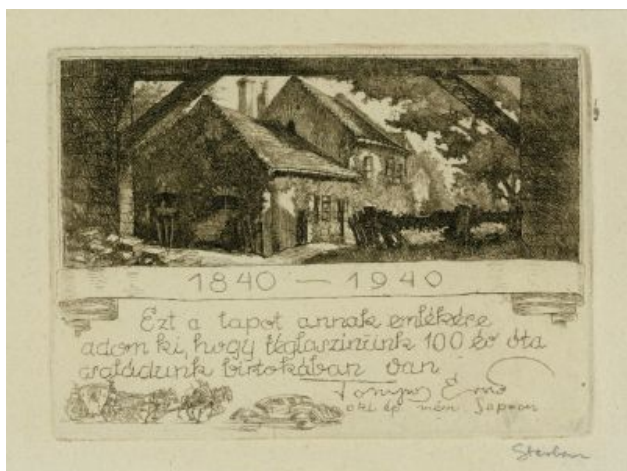 1840 — 1940
Ezt a lapot annak emlékére
adom ki, hogy téglaszinünk 100 év óta
családunk birtokában van
Tompos Ernő
okl. ép. mérn. Sopron
Sterbenz